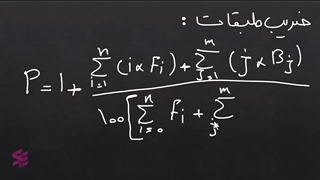 ضریب طبقات :
P = 1 + \frac{\sum_{i=1}^{n} (i \times F_i) + \sum_{j=1}^{m} (j \times B_j)}{100 [ \sum_{i=0}^{n} F_i + \sum_{j}^{m}}